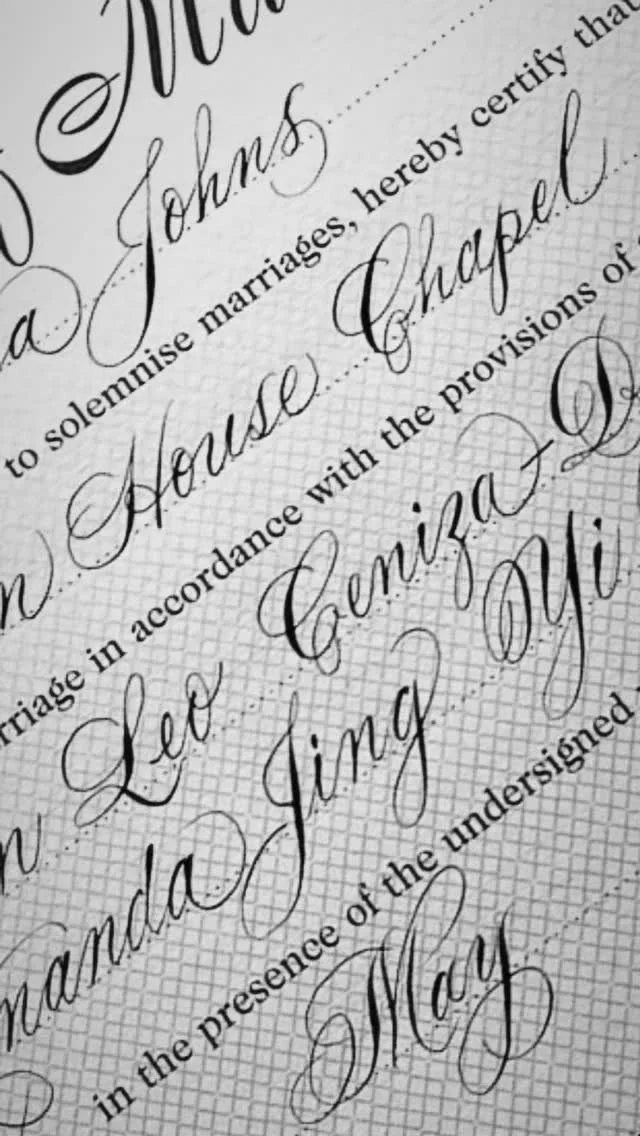 a Johns
to solemnise marriages, hereby certify that
House Chapel
in accordance with the provisions of
Leo Ceniza-D
Jing Yi
in the presence of the undersigned
May